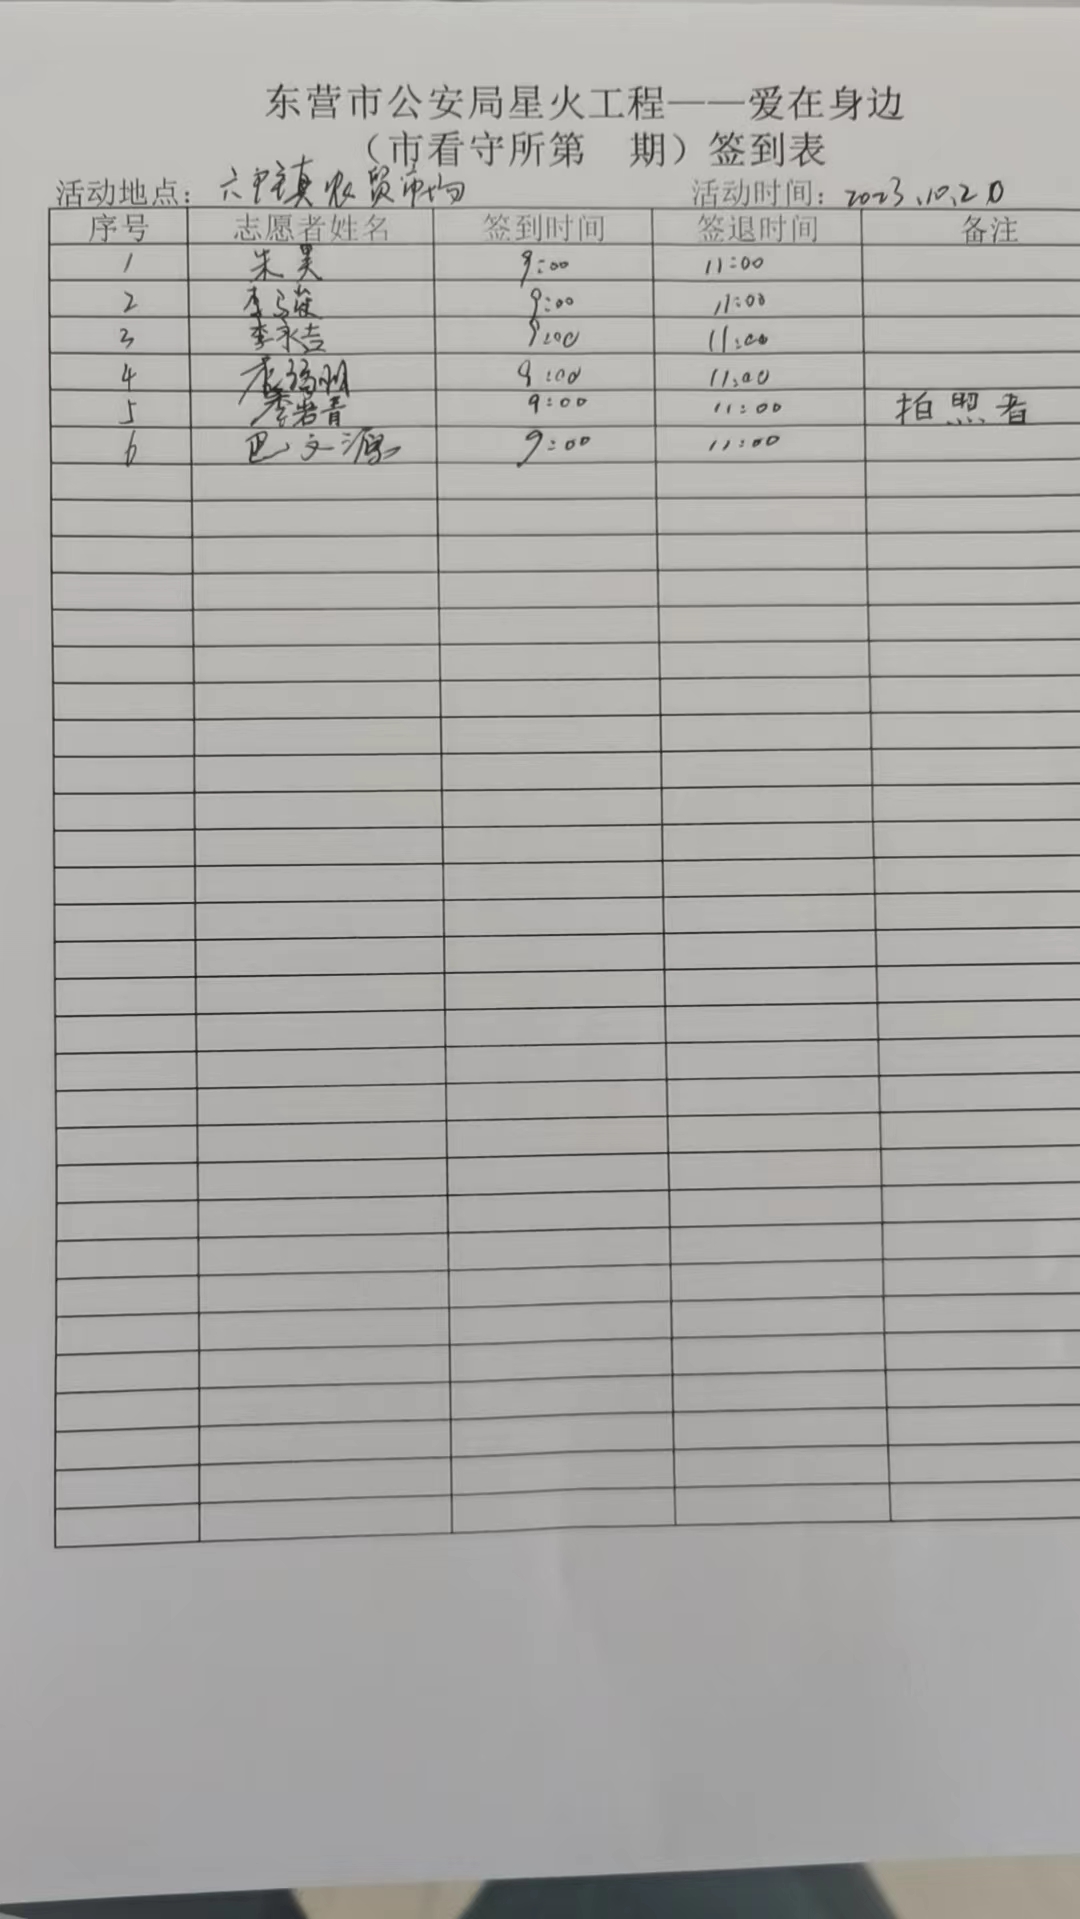 东营市公安局星火工程——爱在身边
（市看守所第 期）签到表
活动地点：六户镇农贸市场 活动时间：2023.10.20
序号 志愿者姓名 签到时间 签退时间 备注
1 朱昊 9:00 11:00
2 李 9:00 11:00
3 李永吉 9:00 11:00
4 9:00 11:00
5 李岩青 9:00 11:00 拍照者
6 巴文源 9:00 11:00